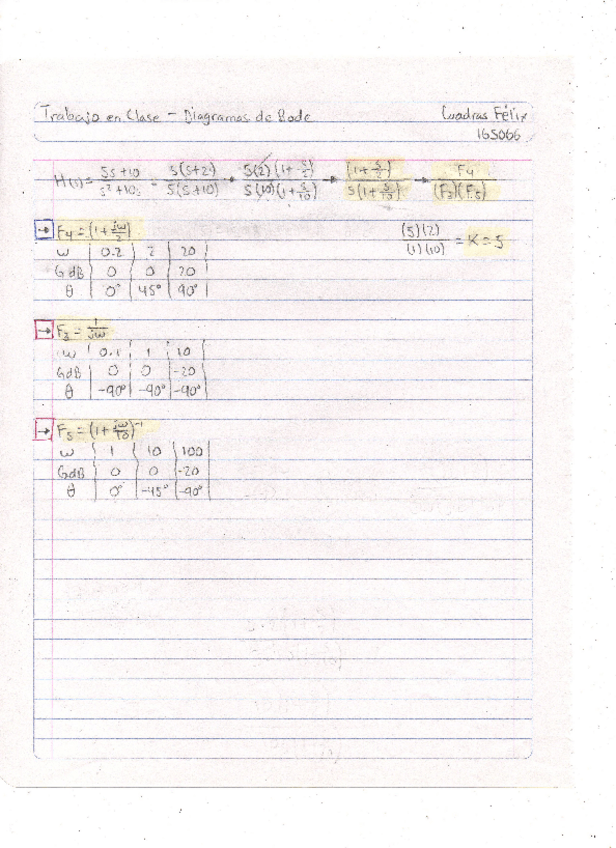 Trabajo en Clase - Diagramas de Bode
Cuadras Félix
165066
H(s) = (5s+10)/(s²+10s) = 5(s+2)/(s(s+10)) • 5(2)(1+s/2)/(s(10)(1+s/10)) → (1+s/2)/(s(1+s/10)) → F4/((F3)(F5))
(5)(2)/((1)(10)) = K = 5
→ F4 = (1+jω/2)
ω | 0.2 | 2 | 20
GdB | 0 | 0 | 20
θ | 0° | 45° | 90°
→ F3 = 1/jω
ω | 0.1 | 1 | 10
GdB | 0 | 0 | -20
θ | -90° | -90° | -90°
→ F5 = (1+jω/10)⁻¹
ω | 1 | 10 | 100
GdB | 0 | 0 | -20
θ | 0° | -45° | -90°